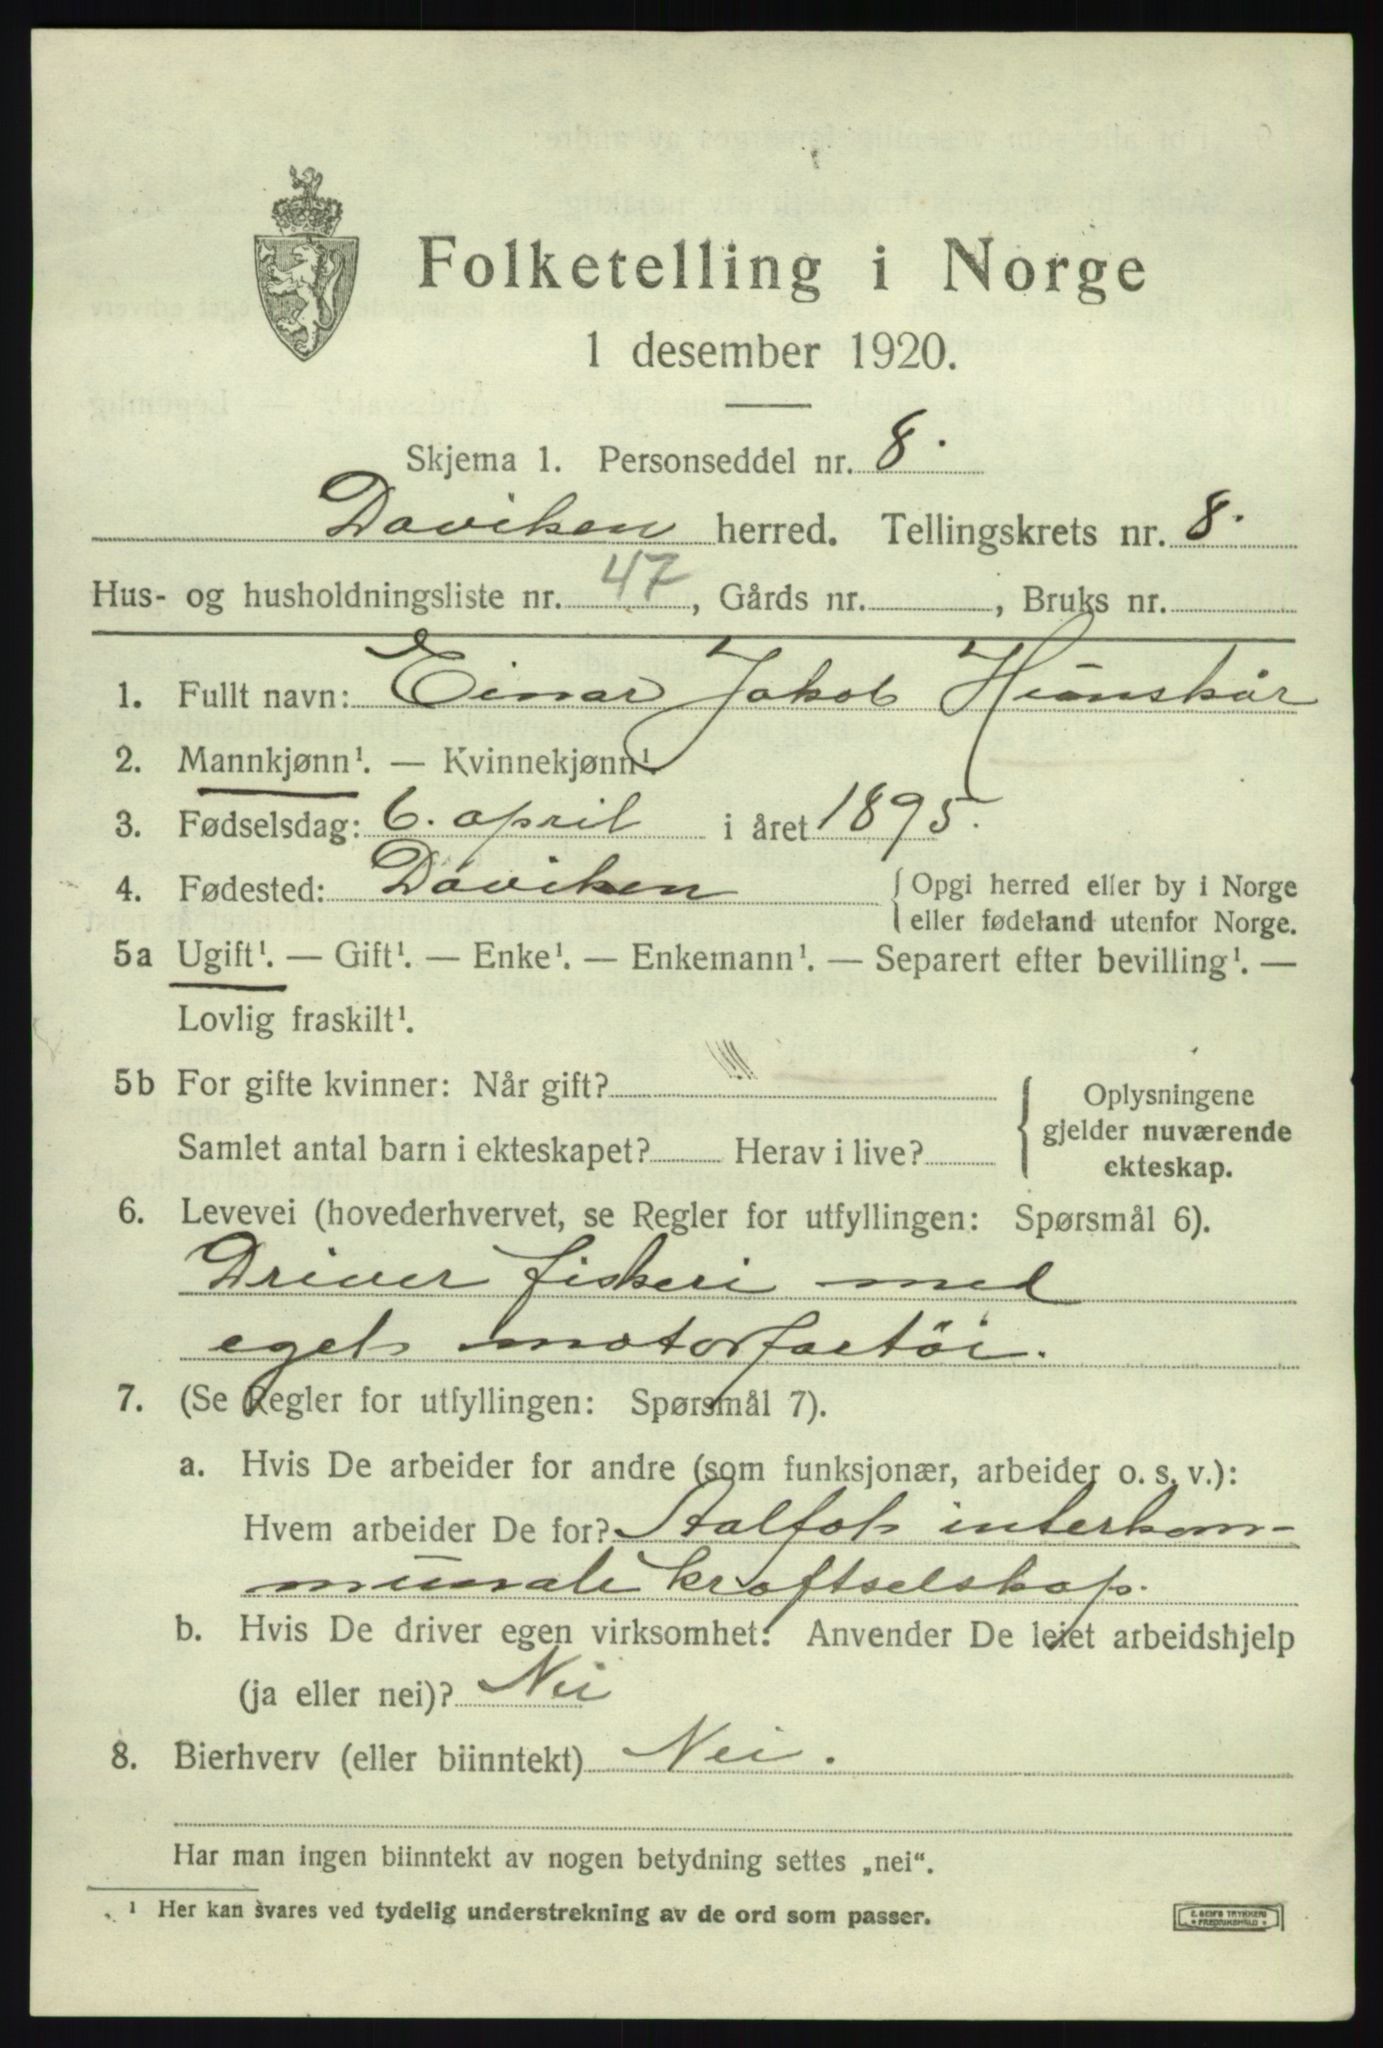 Folketelling i Norge
1 desember 1920.
Skjema 1. Personseddel nr. 8.
Daviken herred. Tellingskrets nr. 8.
Hus- og husholdningsliste nr. 47, Gårds nr. , Bruks nr.
1. Fullt navn: Einar Jakob Hunskår
2. Mannkjønn¹. — Kvinnekjønn¹.
3. Fødselsdag: 6. april i året 1895.
4. Fødested: Daviken { Opgi herred eller by i Norge
eller fødeland utenfor Norge.
5a Ugift¹. — Gift¹. — Enke¹. — Enkemann¹. — Separert efter bevilling¹. —
Lovlig fraskilt¹.
5b For gifte kvinner: Når gift?
Samlet antal barn i ekteskapet? Herav i live?
{ Oplysningene
gjelder nuværende
ekteskap.
6. Levevei (hovederhvervet, se Regler for utfyllingen: Spørsmål 6).
Driver fiskeri med
eget motorfartöi.
7. (Se Regler for utfyllingen: Spørsmål 7).
a. Hvis De arbeider for andre (som funksjonær, arbeider o. s. v.):
Hvem arbeider De for? Aalfot interkom-
munale kraftselskap.
b. Hvis De driver egen virksomhet: Anvender De leiet arbeidshjelp
(ja eller nei)? Nei
8. Bierhverv (eller biinntekt) Nei.
Har man ingen biinntekt av nogen betydning settes „nei“.
¹ Her kan svares ved tydelig understrekning av de ord som passer.
E. SEM'S TRYKKERI
FREDRIKSHALD